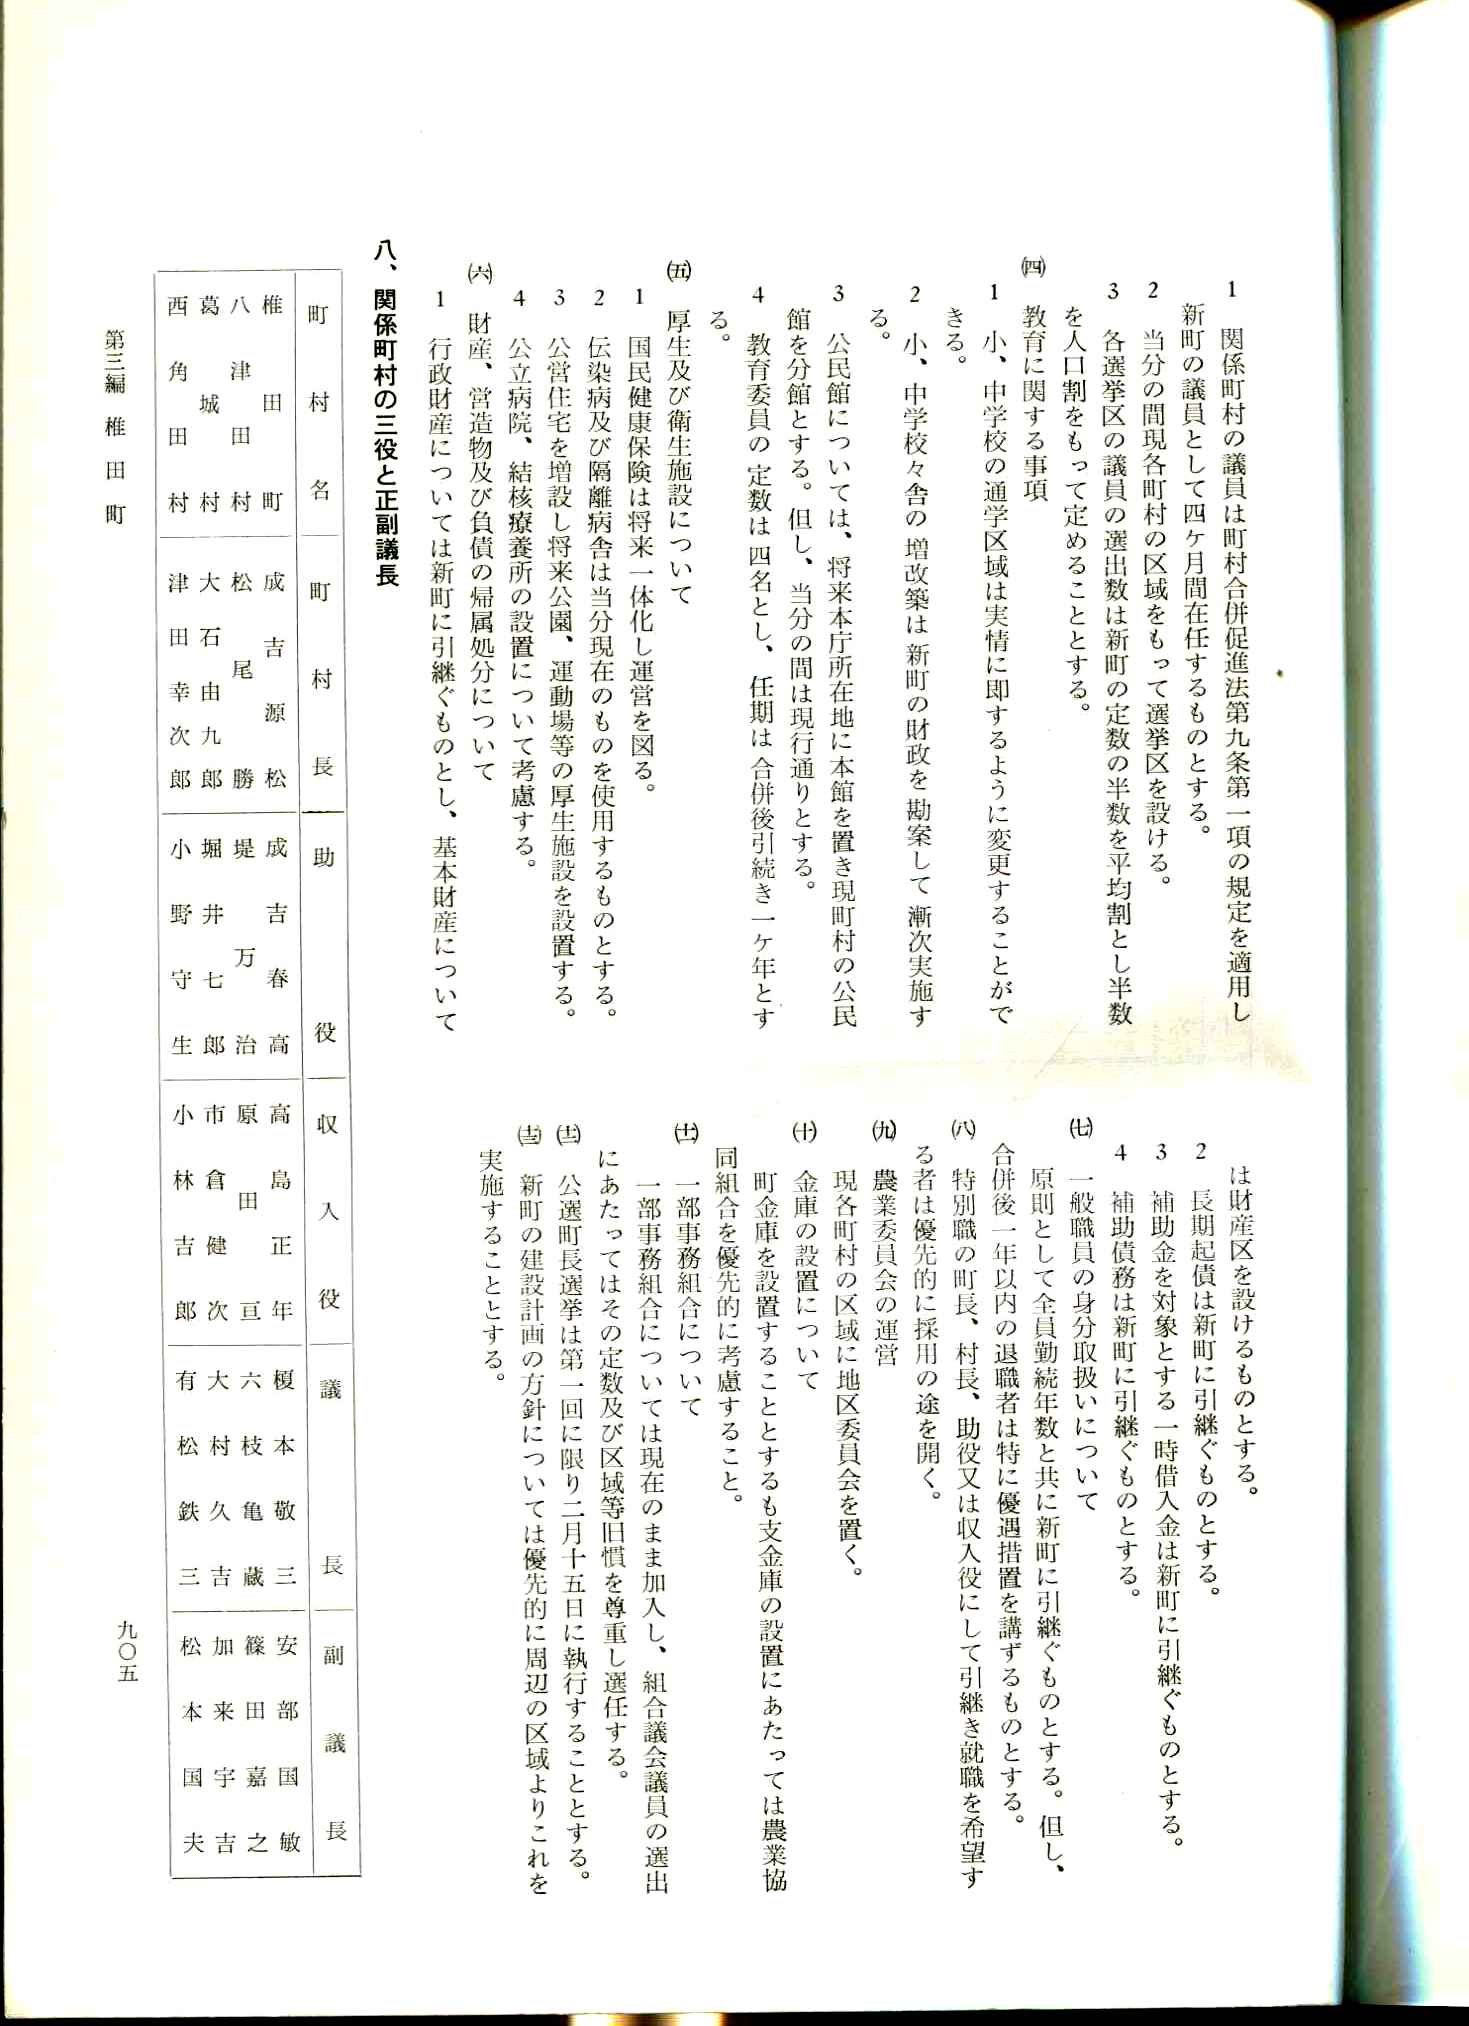 1　関係町村の議員は町村合併促進法第九条第一項の規定を適用し
新町の議員として四ケ月間在任するものとする。
2　当分の間現各町村の区域をもって選挙区を設ける。
3　各選挙区の議員の選出数は新町の定数の半数を平均割とし半数
を人口割をもって定めることとする。
㈣　教育に関する事項
1　小、中学校の通学区域は実情に即するように変更することがで
きる。
2　小、中学校々舎の増改築は新町の財政を勘案して漸次実施す
る。
3　公民館については、将来本庁所在地に本館を置き現町村の公民
館を分館とする。但し、当分の間は現行通りとする。
4　教育委員の定数は四名とし、任期は合併後引続き一ケ年とす
る。
㈤　厚生及び衛生施設について
1　国民健康保険は将来一体化し運営を図る。
2　伝染病及び隔離病舎は当分現在のものを使用するものとする。
3　公営住宅を増設し将来公園、運動場等の厚生施設を設置する。
4　公立病院、結核療養所の設置について考慮する。
㈥　財産、営造物及び負債の帰属処分について
1　行政財産については新町に引継ぐものとし、基本財産について
は財産区を設けるものとする。
2　長期起債は新町に引継ぐものとする。
3　補助金を対象とする一時借入金は新町に引継ぐものとする。
4　補助債務は新町に引継ぐものとする。
㈦　一般職員の身分取扱いについて
原則として全員勤続年数と共に新町に引継ぐものとする。但し、
合併後一年以内の退職者は特に優遇措置を講ずるものとする。
㈧　特別職の町長、村長、助役又は収入役にして引継き就職を希望す
る者は優先的に採用の途を開く。
㈨　農業委員会の運営
現各町村の区域に地区委員会を置く。
㈩　金庫の設置について
町金庫を設置することとするも支金庫の設置にあたっては農業協
同組合を優先的に考慮すること。
(十一)　一部事務組合について
一部事務組合については現在のまま加入し、組合議会議員の選出
にあたってはその定数及び区域等旧慣を尊重し選任する。
(十二)　公選町長選挙は第一回に限り二月十五日に執行することとする。
(十三)　新町の建設計画の方針については優先的に周辺の区域よりこれを
実施することとする。
八、関係町村の三役と正副議長
町村名　町村長　助役　収入役　議長　副議長
椎田町　成吉源松　成吉春高　高島正年　榎本敬三　安部国敏
八津田村　松尾勝　堤万治　原田亘　六枝亀蔵　篠田嘉之
葛城村　大石由九郎　堀井七郎　市倉健次　大村久吉　加来宇吉
西角田村　津田幸次郎　小野守生　小林吉郎　有松鉄三　松本国夫
第三編　椎田町
九〇五